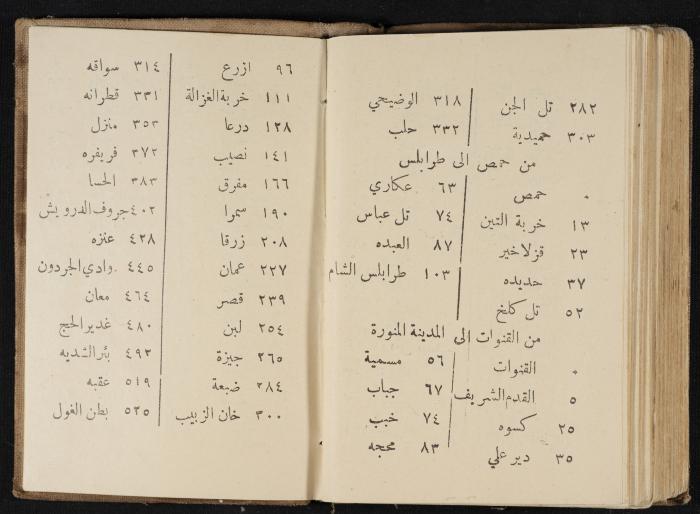 ٢٨٢ تل الجن
٣٠٣ حميدية
٣١٨ الوضيحي
٣٣٢ حلب
من حمص الى طرابلس
٠ حمص
١٣ خربة التين
٢٣ قزلاخير
٣٧ حديده
٥٢ تل كلخ
٦٣ عكاري
٧٤ تل عباس
٨٧ العبده
١٠٣ طرابلس الشام
من القنوات الى المدينة المنورة
٠ القنوات
٥ القدم الشريف
٢٥ كسوه
٣٥ دير علي
٥٦ مسمية
٦٧ جباب
٧٤ خبب
٨٣ محجه
٩٦ ازرع
١١١ خربة الغزالة
١٢٨ درعا
١٤١ نصيب
١٦٦ مفرق
١٩٠ سمرا
٢٠٨ زرقا
٢٢٧ عمان
٢٣٩ قصر
٢٥٤ لبن
٢٦٥ جيزة
٢٨٤ ضبعة
٣٠٠ خان الزبيب
٣١٤ سواقه
٣٣١ قطرانه
٣٥٣ منزل
٣٧٢ فريفره
٣٨٣ الحسا
٤٠٢ جروف الدرويش
٤٢٨ عنزه
٤٤٥ وادي الجردون
٤٦٤ معان
٤٨٠ غدير الحج
٤٩٢ بئر الشديه
٥١٩ عقبه
٥٢٥ بطن الغول